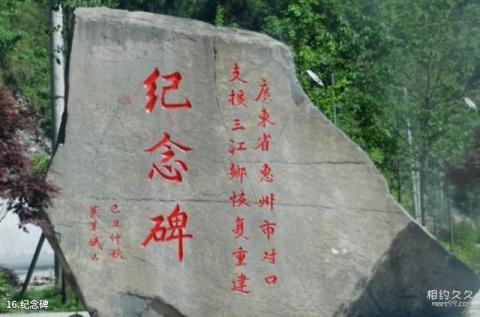 廣東省惠州市对口
支援三江鄉恢复重建
纪念碑
己丑仲秋
16.纪念碑
相约久久
meet99.com